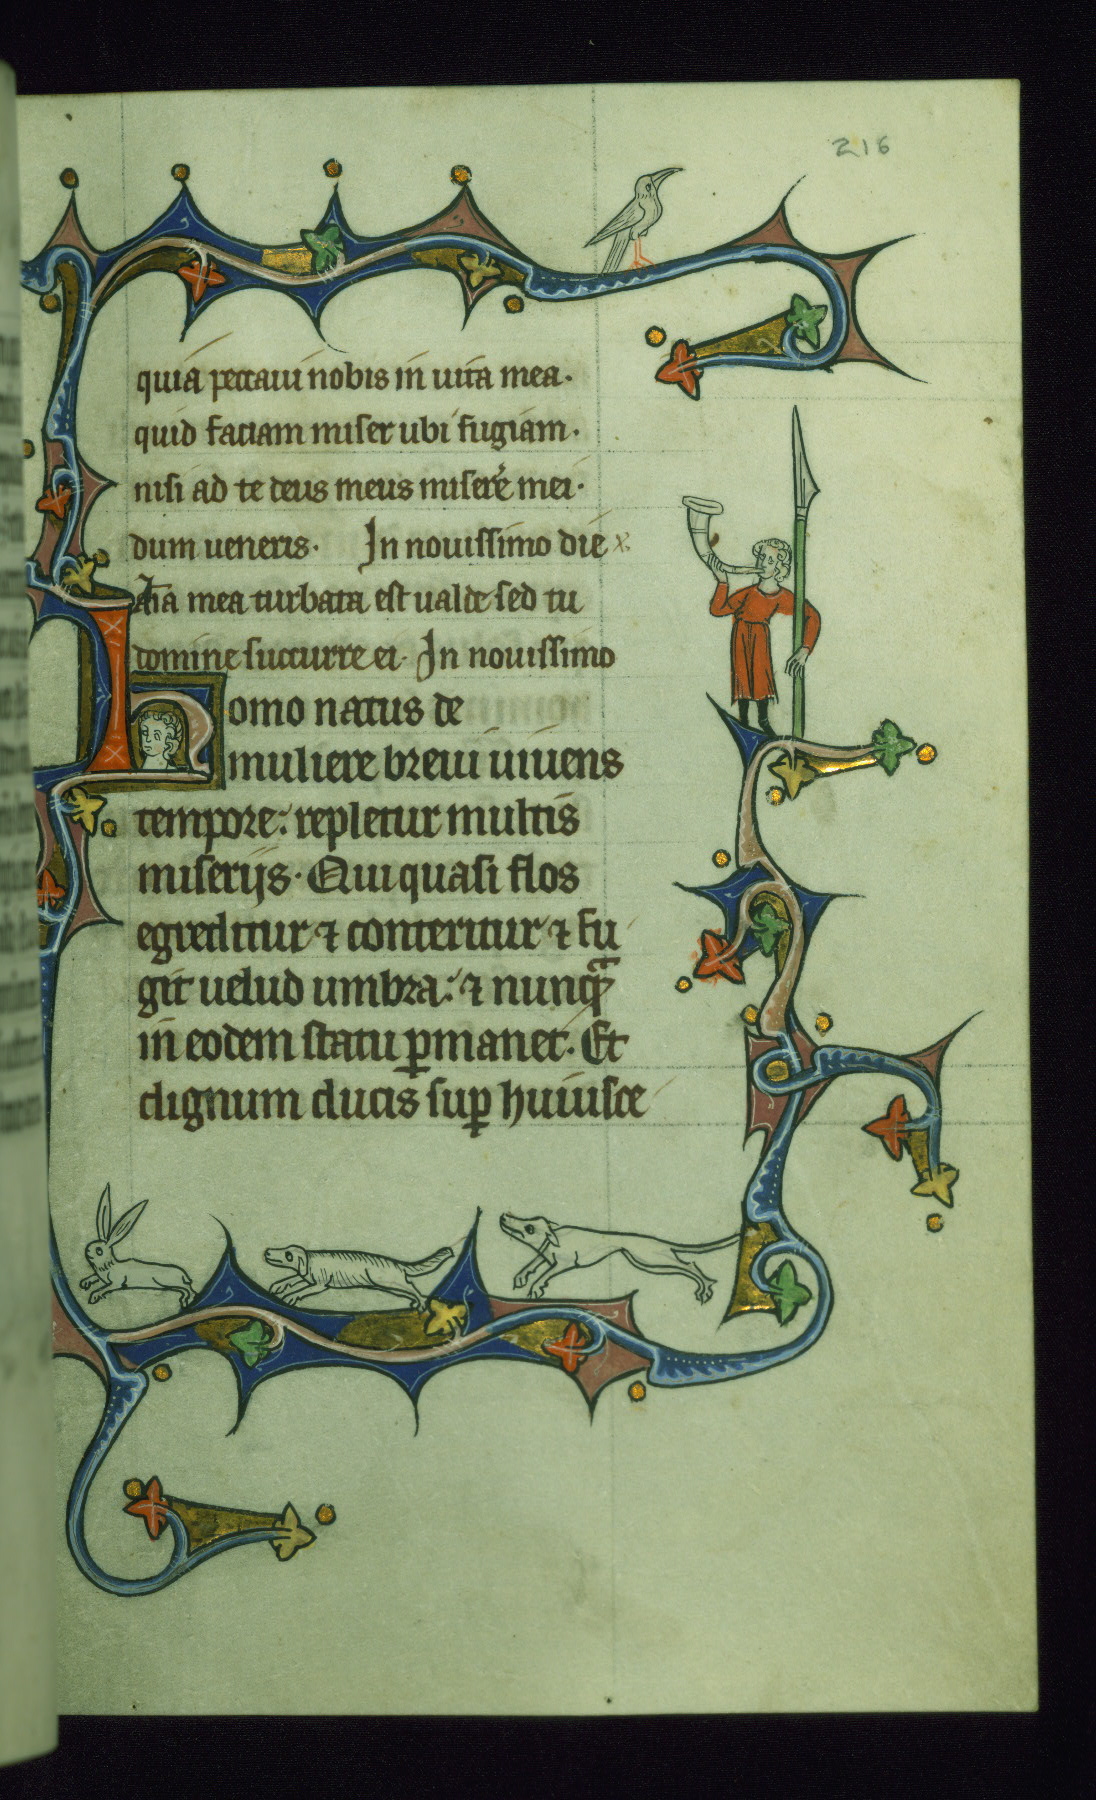 216
quia peccaui nobis in uita mea.
quid faciam miser ubi fugiam.
nisi ad te deus meus miserẽ mei.
dum ueneris. In nouissimo die x
aĩa mea turbata est ualde sed tu
domine succurre ei. In nouissimo
homo natus de
muliere breui uiuens
tempore: repletur multis
miserijs. Qui quasi flos
egreditur ⁊ conteritur ⁊ fu
git uelud umbra: ⁊ nunqꝫ̃
in eodem statu ꝑmanet. Et
dignum ducis suꝑ huiusce